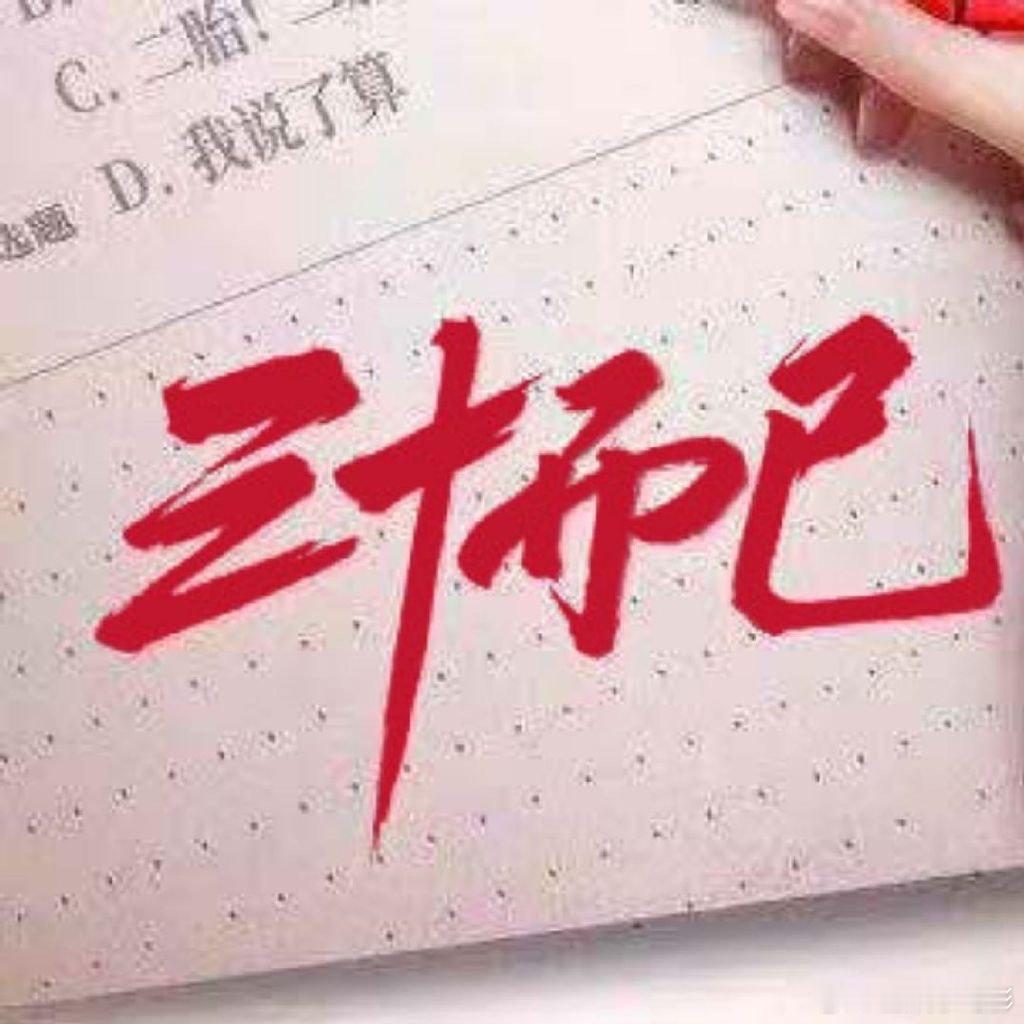 C. 二胎!
D. 我说了算
选题
三十而已